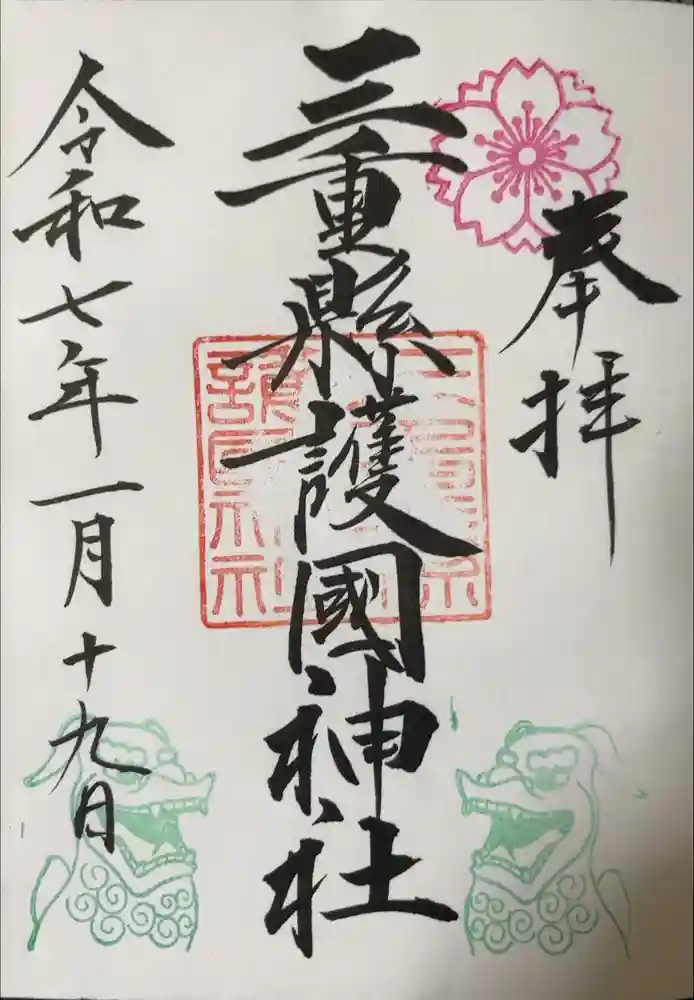 奉拝
三重縣護國神社
令和七年一月十九日